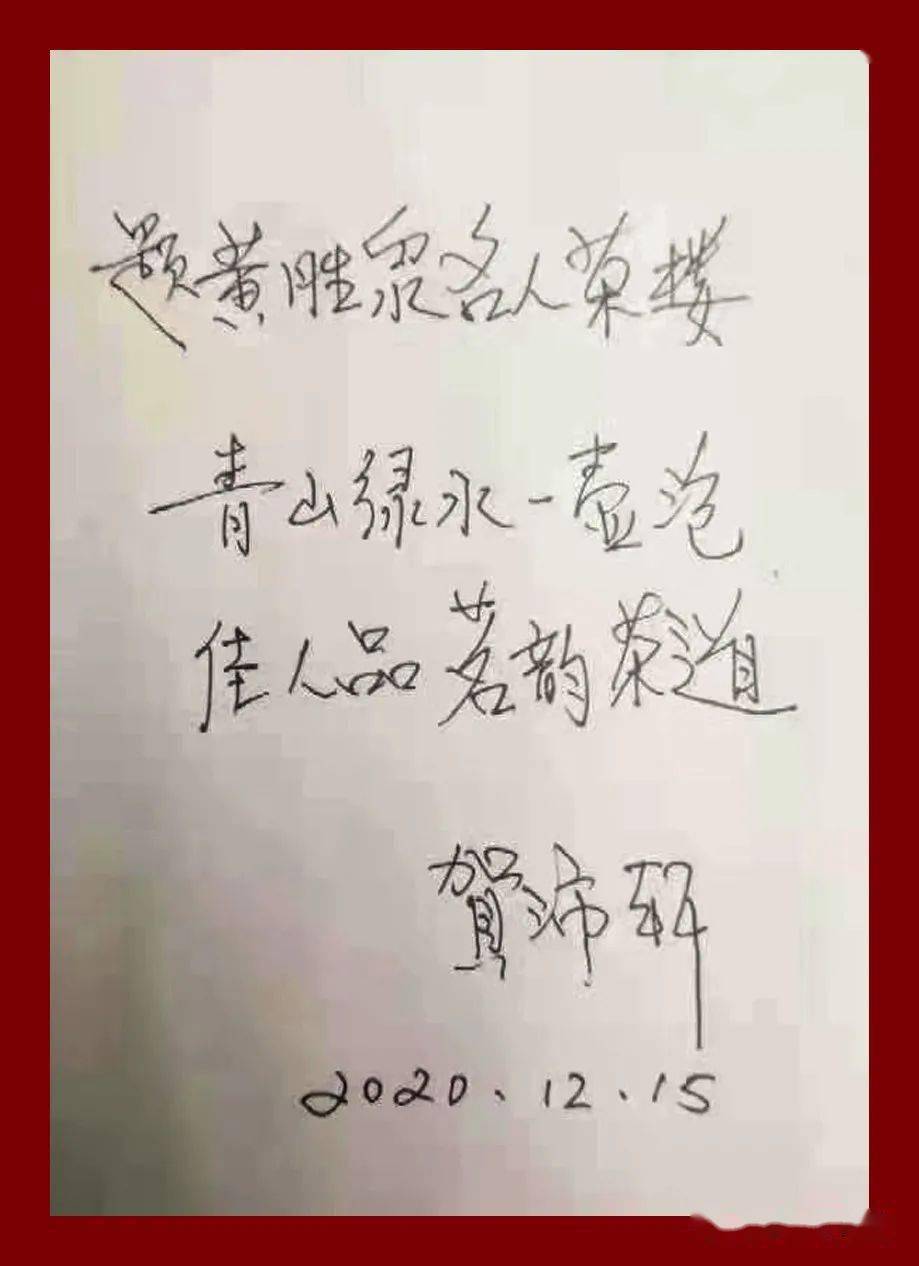 题黄胜泉名人茶楼
青山绿水一壶泡
佳人品茗韵茶道
贺沛轩
2020.12.15